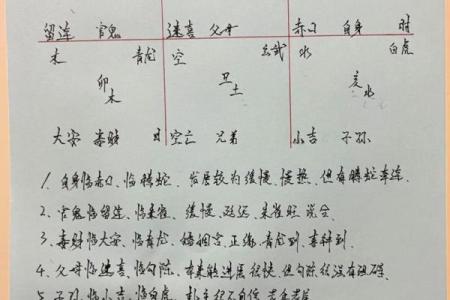 留连 官鬼 速喜 父母 赤口 自身 时
木 青龙 空 玄武 水 白虎
卯 丑 亥
木 土 水
大安 妻财 日 空亡 兄弟 小吉 子孙
1. 自身临赤口、临腾蛇、发展较为缓慢、慢热、但有腾蛇牵连
2. 官鬼临留连、临朱雀、缓慢、延迟、朱雀旺、说会
3. 妻财临大安、临青龙、婚姻宫、正缘、青龙到、喜神到
4. 父母临速喜、临勾陈、本来能进展很快、但勾陈很没有阻碍
5. 子孙临小吉、临白虎